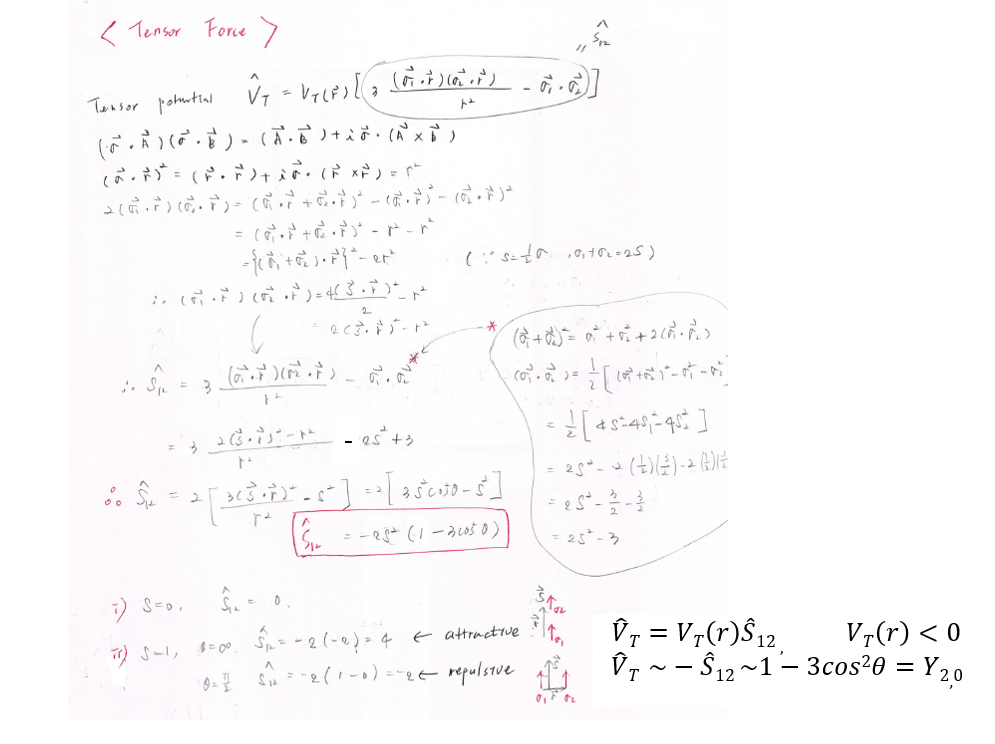 < Tensor Force >
" Ŝ₁₂
Tensor potential V̂_T = V_T(r⃗) [ 3 (σ⃗₁·r⃗)(σ⃗₂·r⃗) / r² - σ⃗₁·σ⃗₂ ]
(σ⃗·A⃗)(σ⃗·B⃗) = (A⃗·B⃗) + iσ⃗·(A⃗×B⃗)
(σ⃗·r⃗)² = (r⃗·r⃗) + iσ⃗·(r⃗×r⃗) = r²
2(σ⃗₁·r⃗)(σ⃗₂·r⃗) = (σ⃗₁·r⃗ + σ⃗₂·r⃗)² - (σ⃗₁·r⃗)² - (σ⃗₂·r⃗)²
= (σ⃗₁·r⃗ + σ⃗₂·r⃗)² - r² - r²
= {(σ⃗₁ + σ⃗₂)·r⃗}² - 2r² (∵ S = ½σ , σ₁+σ₂ = 2S)
∴ (σ⃗₁·r⃗)(σ⃗₂·r⃗) = 4(S⃗·r⃗)² / 2 - r²
= 2(S⃗·r⃗)² - r²
∴ Ŝ₁₂ = 3 (σ⃗₁·r⃗)(σ⃗₂·r⃗) / r² - σ⃗₁·σ⃗₂ *
= 3 2(S⃗·r⃗)² - r² / r² - 2S² + 3
∴ Ŝ₁₂ = 2 [ 3(S⃗·r⃗)² / r² - S² ] = 2 [ 3S²cos²θ - S² ]
Ŝ₁₂ = -2S² (1 - 3cos²θ)
* (σ⃗₁+σ⃗₂)² = σ₁² + σ₂² + 2(σ⃗₁·σ⃗₂)
(σ⃗₁·σ⃗₂) = ½ [ (σ⃗₁+σ⃗₂)² - σ₁² - σ₂²
= ½ [ 4S² - 4S₁² - 4S₂² ]
= 2S² - 2(½)(3/2) - 2(½)(3/2
= 2S² - 3/2 - 3/2
= 2S² - 3
i) S=0, Ŝ₁₂ = 0.
ii) S=1, Ŝ₁₂ = -2(-2) = 4 ← attractive
θ=π/2 Ŝ₁₂ = -2(1-0) = -2 ← repulsive
S⃗ σ₂
r⃗ σ₁
S⃗
σ₁ r⃗ σ₂
V̂_T = V_T(r)Ŝ₁₂, V_T(r) < 0
V̂_T ~ − Ŝ₁₂ ~1 − 3cos²θ = Y₂,₀